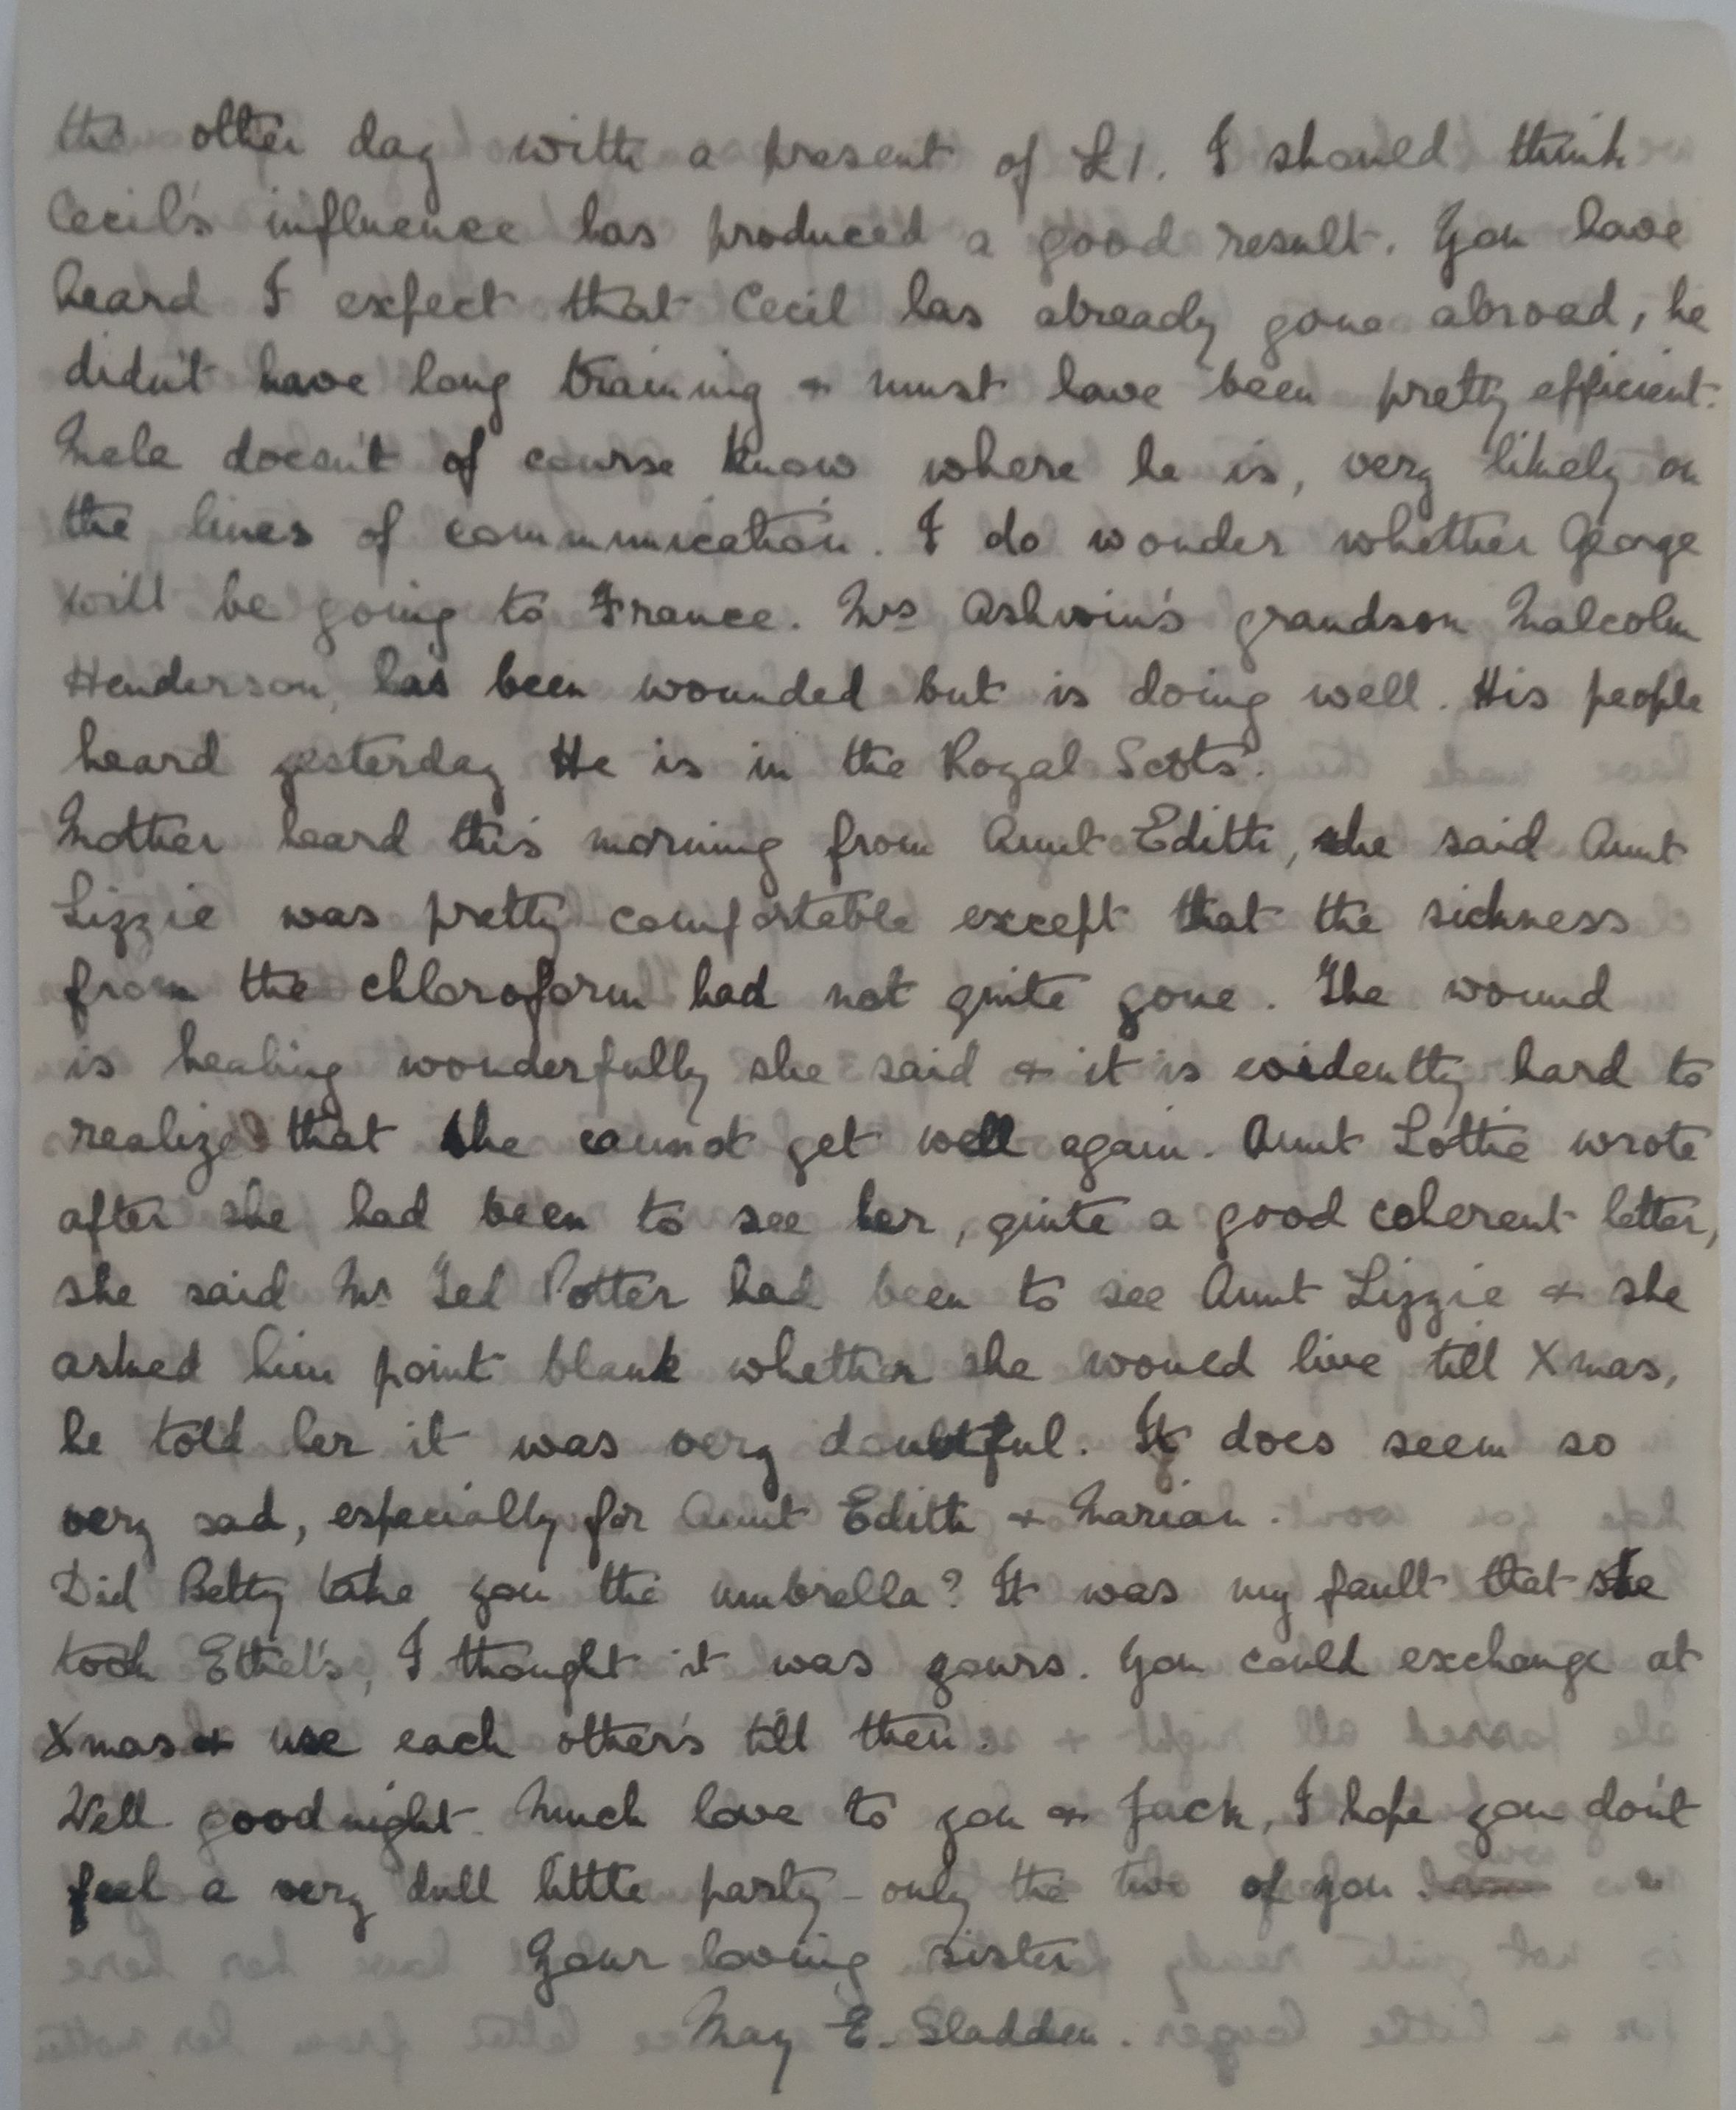 the other day with a present of £1. I should think
Cecil's influence has produced a good result. You have
heard I expect that Cecil has already gone abroad, he
didn't have long training & must have been pretty efficient.
Mela doesn't of course know where he is, very likely on
the lines of communication. I do wonder whether George
will be going to France. Mrs Ashwin's grandson Malcolm
Henderson, has been wounded but is doing well. His people
heard yesterday He is in the Royal Scots.
Mother heard this morning from Aunt Edith, she said Aunt
Lizzie was pretty comfortable except that the sickness
from the chloroform had not quite gone. The wound
is healing wonderfully she said & it is evidently hard to
realize that she cannot get well again. Aunt Lottie wrote
after she had been to see her, quite a good coherent letter,
she said Mr Ted Potter had been to see Aunt Lizzie & she
asked him point blank whether she would live till Xmas,
he told her it was very doubtful. It does seem so
very sad, especially for Aunt Edith & Marian.
Did Betty take you the umbrella? It was my fault that she
took Ethel's, I thought it was yours. You could exchange at
Xmas & use each other's till then.
Well goodnight. Much love to you & Jack, I hope you don't
feel a very dull little party – only the two of you.
Your loving sister
May E. Sladden.